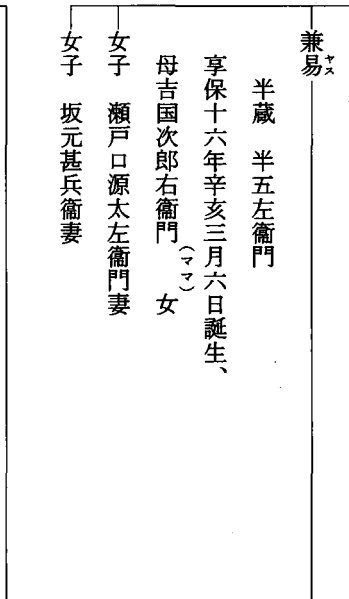 兼易ヤス
半蔵　半五左衞門
享保十六年辛亥三月六日誕生、
母吉国次郎右衞門（ママ）女
女子　瀬戸口源太左衞門妻
女子　坂元甚兵衞妻